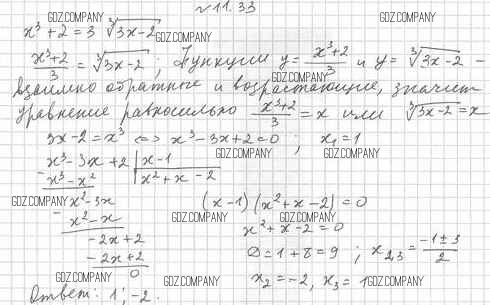 №11.33
x³ + 2 = 3 ∛(3x-2)
(x³+2)/3 = ∛(3x-2) ; Функции y = (x³+2)/3 и y = ∛(3x-2) -
взаимно обратные и возрастающие, значит
уравнение равносильно (x³+2)/3 = x или ∛(3x-2) = x
3x-2 = x³ <=> x³-3x+2=0 ; x₁=1
x³-3x+2 | x-1
- x³-x² | x²+x-2
x²-3x
- x²-x
-2x+2
- -2x+2
0
(x-1)(x²+x-2)=0
x²+x-2=0
D=1+8=9 ; x₂,₃ = (-1±3)/2
x₂=-2, x₃=1
Ответ: 1; -2.
GDZ.COMPANY
GDZ.COMPANY
GDZ.COMPANY
GDZ.COMPANY
GDZ.COMPANY
GDZ.COMPANY
GDZ.COMPANY
GDZ.COMPANY
GDZ.COMPANY
GDZ.COMPANY
GDZ.COMPANY
GDZ.COMPANY